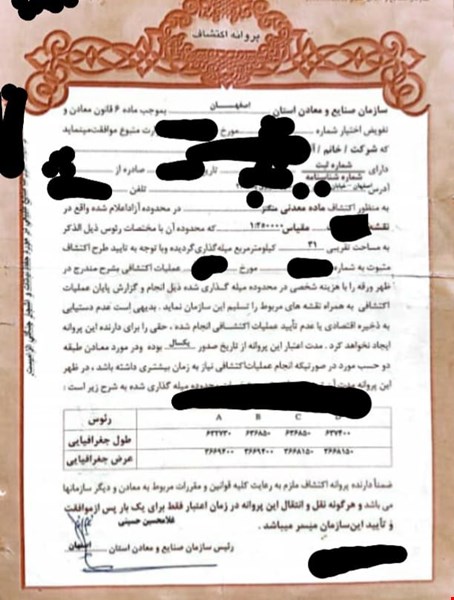 پروانه اکتشاف
سازمان صنایع و معادن استان اصفهان بموجب ماده ۶ قانون معادن و
تفویض اختیار شماره مورخ رت متبوع موافقت مینماید
که شرکت / خانم / آ
دارای شماره ثبت شماره شناسنامه تاری صادره از
آدرس اصفهان - خیابان تلفن
به منظور اکتشاف ماده معدنی منگنز در محدوده آزاد اعلام شده واقع در
نقشه مقیاس ۱:۲۵۰۰۰۰ که محدوده آن با مختصات رئوس ذیل الذکر
به مساحت تقریبی ۲۱ کیلومترمربع میله گذاری گردیده و با توجه به تایید طرح اکتشاف
مثبوت به شماره مورخ عملیات اکتشافی بشرح مندرج در
ظهر ورقه را با هزینه شخصی در محدوده میله گذاری شده ذیل انجام و گزارش پایان عملیات
اکتشافی به همراه نقشه های مربوط را تسلیم این سازمان نماید . بدیهی است عدم دستیابی
به ذخیره اقتصادی یا عدم تأیید عملیات اکتشافی انجام شده ، حقی را برای دارنده این پروانه
ایجاد نخواهد کرد . مدت اعتبار این پروانه از تاریخ صدور یکسال بوده و در مورد معادن طبقه
دو حسب مورد در صورتیکه انجام عملیات اکتشافی نیاز به زمان بیشتری داشته باشد ، در ظهر
این پروانه محدوده میله گذاری شده به شرح زیر است :
رئوس A B C
طول جغرافیایی ۶۳۳۷۳۰ ۶۳۶۸۵۰ ۶۳۶۸۵۰ ۶۳۷۴۰۰
عرض جغرافیایی ۳۶۶۹۴۰۰ ۳۶۶۹۴۰۰ ۳۶۶۸۱۵۰ ۳۶۶۸۱۵۰
ضمناً دارنده پروانه اکتشاف ملزم به رعایت کلیه قوانین و مقررات مربوط به معادن و دیگر سازمانها
می باشد و هرگونه نقل و انتقال این پروانه در زمان اعتبار فقط برای یک بار پس از موافقت
و تأیید این سازمان میسر میباشد .
غلامحسین حسینی
رئیس سازمان صنایع و معادن استان اصفهان